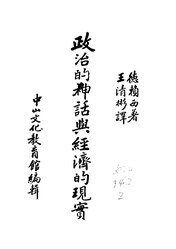 德楨西著
王清彬譯
政治的神話與經濟的現實
中山文化教育館編輯